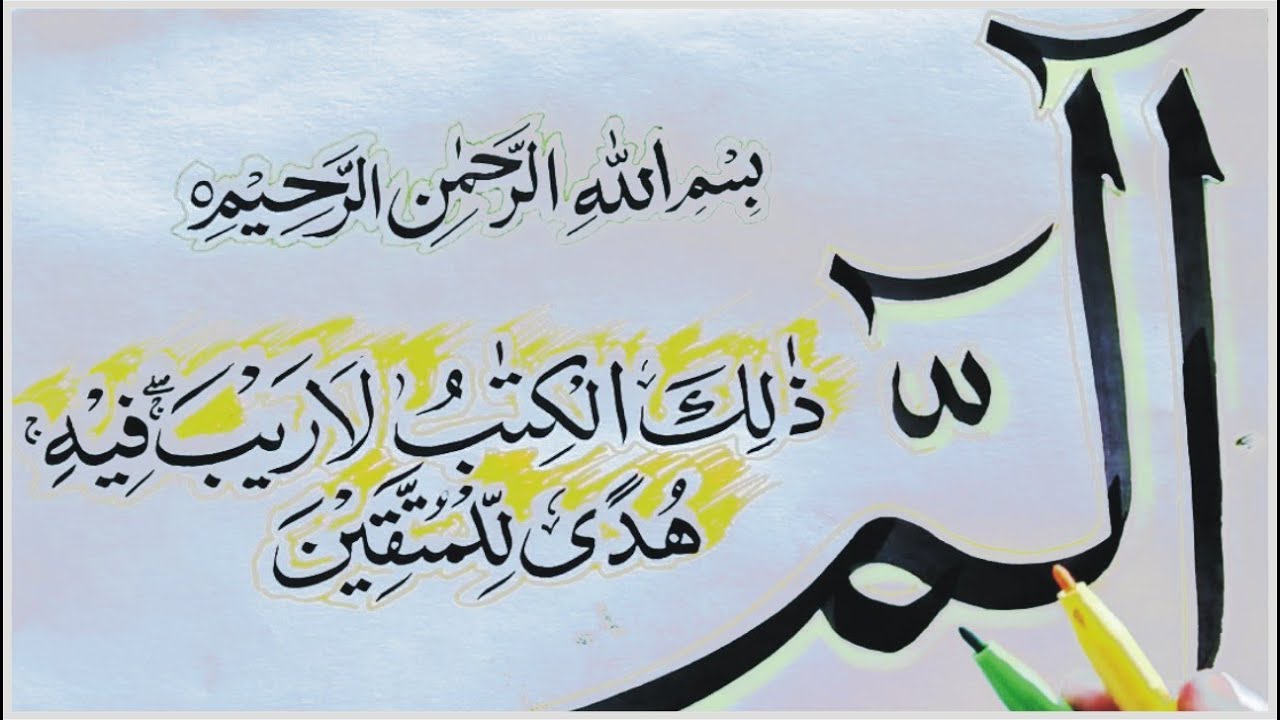 بِسْمِ اللهِ الرَّحْمٰنِ الرَّحِيْمِ ○
الٓمّٓ
ذٰلِكَ الْكِتٰبُ لَا رَيْبَ ۛۚ فِيْهِ ۛۚ
هُدًى لِّلْمُتَّقِيْنَ